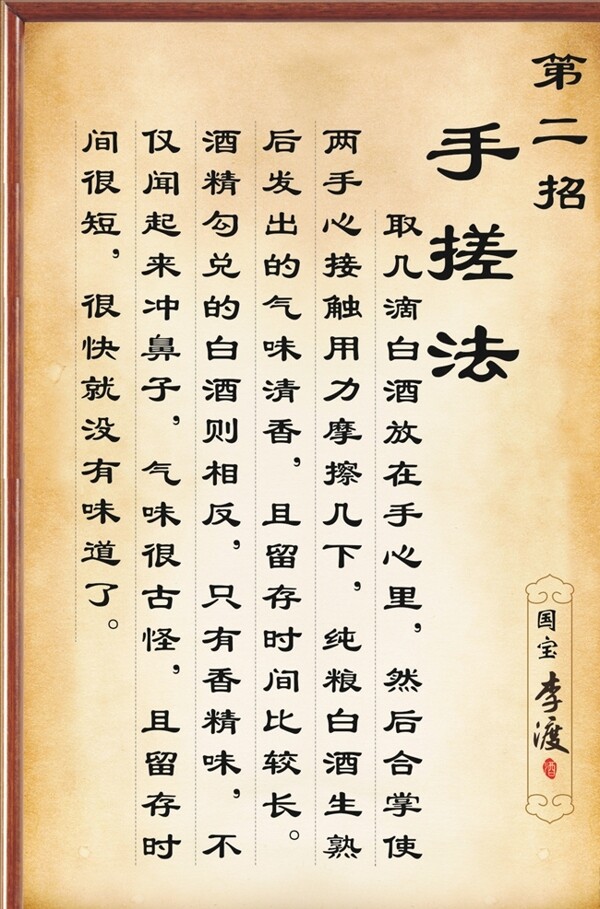 第二招
手搓法
取几滴白酒放在手心里，然后合掌使
两手心接触用力摩擦几下，纯粮白酒生熟
后发出的气味清香，且留存时间比较长。
酒精勾兑的白酒则相反，只有香精味，不
仅闻起来冲鼻子，气味很古怪，且留存时
间很短，很快就没有味道了。
国宝李渡
酒